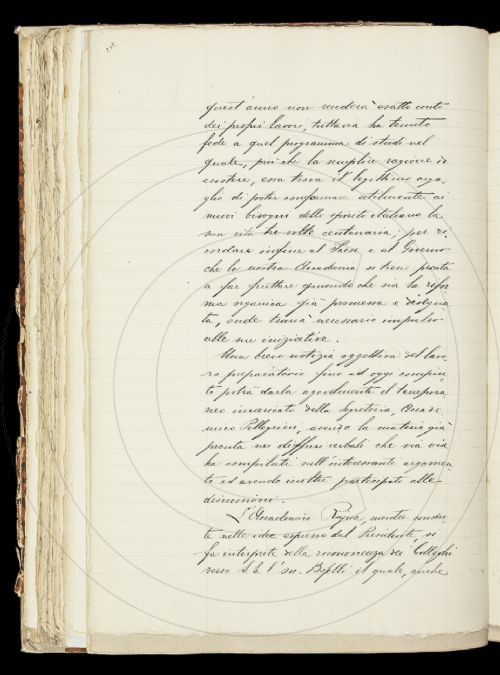 quest'anno non renderà esatto conto
dei propri lavori, tuttavia ha tenuto
fede a quel programma di studi nel
quale, più che la semplice ragione di
esistere, essa trova il legittimo orgo-
glio di poter conformare utilmente ai
nuovi bisogni dello spirito italiano la
sua vita tre volte centenaria; per ri-
cordare infine al Paese e al Governo
che la nostra Accademia si tiene pronta
a far fruttare quando che sia la rifor-
ma organica già promessa e disegna-
ta, onde trarrà necessario impulso
alle sue iniziative.
Una breve notizia oggettiva del lavo-
ro preparatorio fino ad oggi compiu-
to potrà darla agevolmente il tempora-
neo incaricato della Segreteria, Accade-
mico Pellegrini, avendo la materia già
pronta nei diffusi verbali che via via
ha compilati sull'interessante argomen-
to ed avendo inoltre partecipato alle
discussioni.
L'Accademico Rajna, mentre consen-
te nelle idee espresse dal Presidente, si
fa interprete della riconoscenza dei Colleghi
verso S. E. l'on. il quale, anche